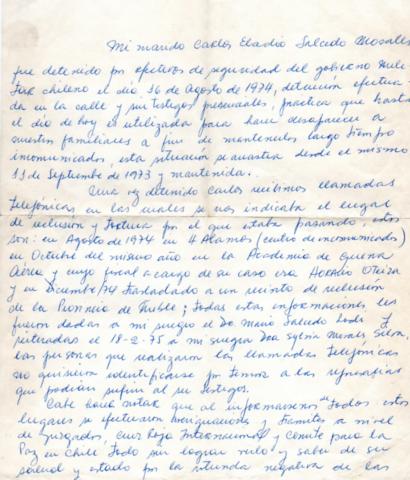 Mi marido Carlos Eladio Salcedo Morales
fue detenido por efectivos de seguridad del gobierno mili-
tar chileno el día 16 de Agosto de 1974, detención efectua-
da en la calle y sin testigos presenciales, práctica que hasta
el día de hoy es utilizada para hacer desaparecer a
nuestros familiares a fin de mantenerlos largo tiempo
incomunicados, esta situación se arrastra desde el mismo
11 de Septiembre de 1973 y mantenida.
Una vez detenido Carlos recibimos llamadas
telefónicas en las cuales se nos indicaba el lugar
de reclusión y tortura por el que estaba pasando, estos
son: en Agosto de 1974 en 4 Alamos (centro de incomunicados)
en Octubre del mismo año en la Academia de Guerra
Aérea y cuyo fiscal a cargo de su caso era Horacio Oteiza
y en Diciembre/74 trasladado a un recinto de reclusión
de la Provincia de Ñuble; todas estas informaciones les
fueron dadas a mi suegro el Dn Mario Salcedo y
reiteradas el 18-2-75 a mi suegra Dña Sylvia Morales
las personas que realizaron las llamadas telefónicas
no quisieron identificarse por temor a las represalias
que podían sufrir al ser testigos.
Cabe hacer notar que al informarnos de todos estos
lugares se efectuaron averiguaciones y trámites a nivel
de juzgados, Cruz Roja Internacional y Comité para la
Paz en Chile todo sin lograr verlo y saber de su
salud y estado por la rotunda negativa de las